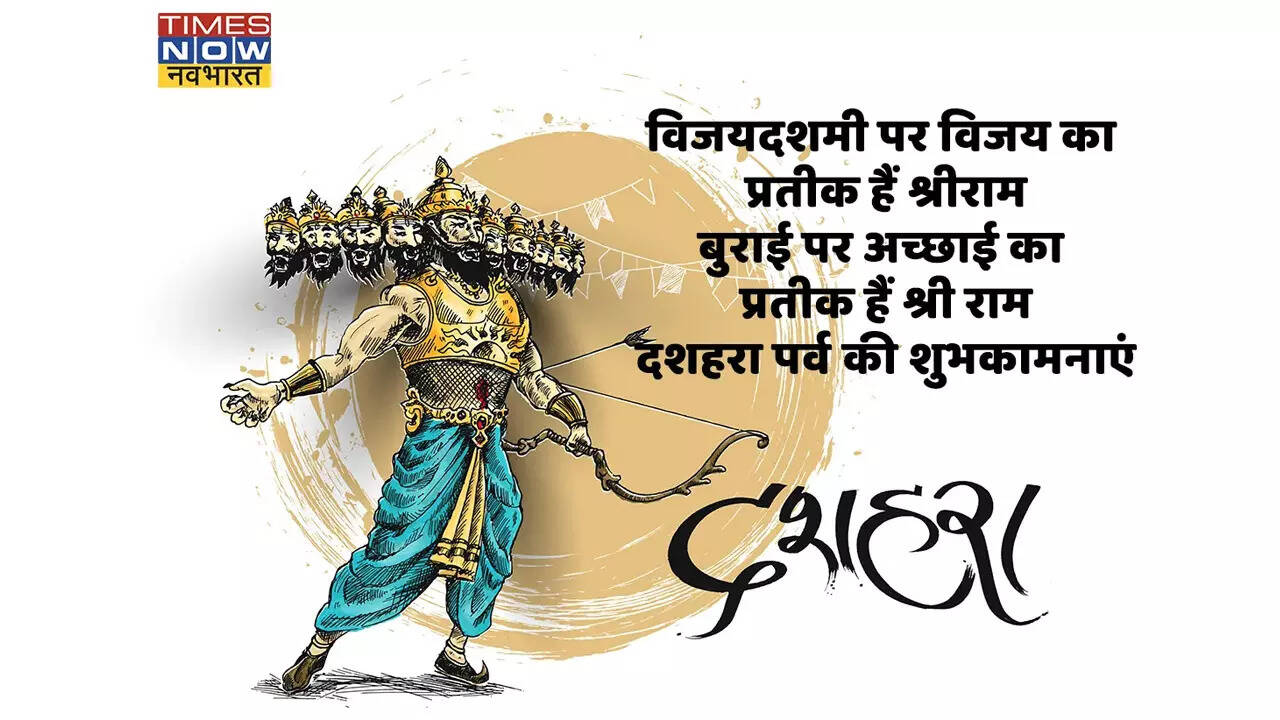 TIMES
NOW
नवभारत
विजयदशमी पर विजय का
प्रतीक हैं श्रीराम
बुराई पर अच्छाई का
प्रतीक हैं श्री राम
दशहरा पर्व की शुभकामनाएं
दशहरा